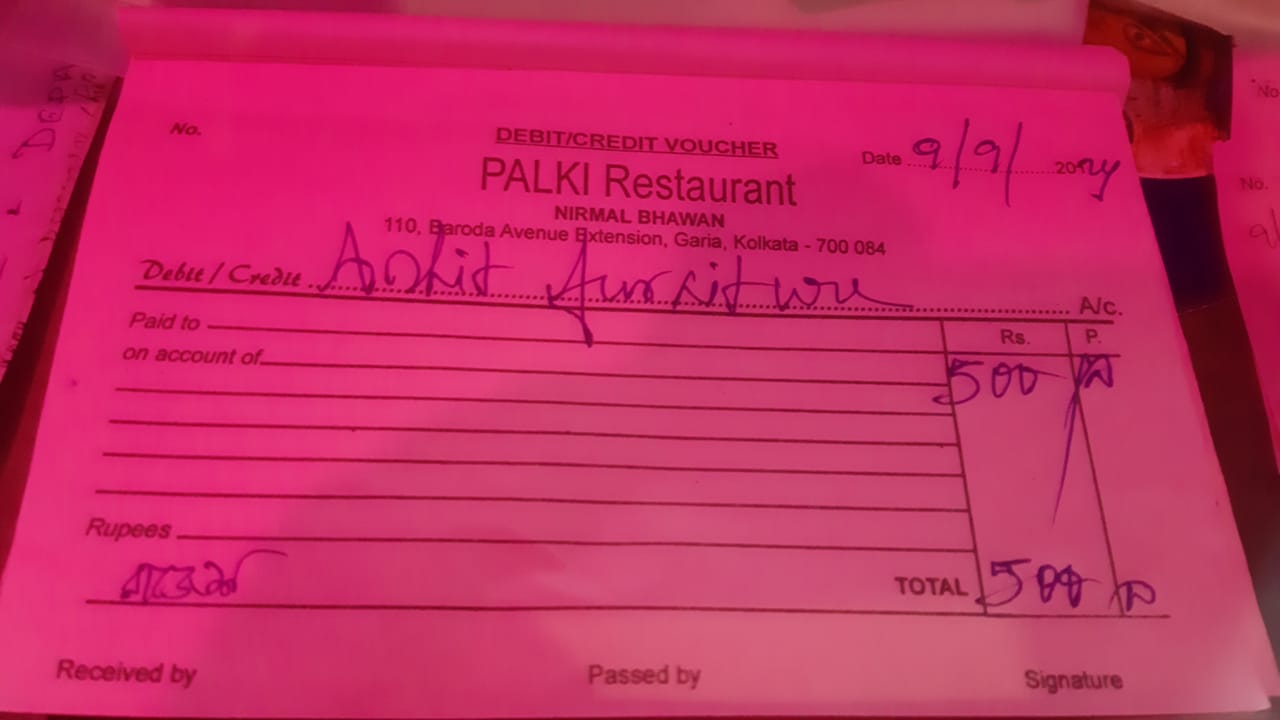 No.
DEBIT/CREDIT VOUCHER
Date 9/9/ 2024
PALKI Restaurant
NIRMAL BHAWAN
110, Baroda Avenue Extension, Garia, Kolkata - 700 084
Debit / Credit Furniture A/c.
Paid to Rs. P.
on account of 500
Rupees
TOTAL 500
Received by Passed by Signature
No
No.